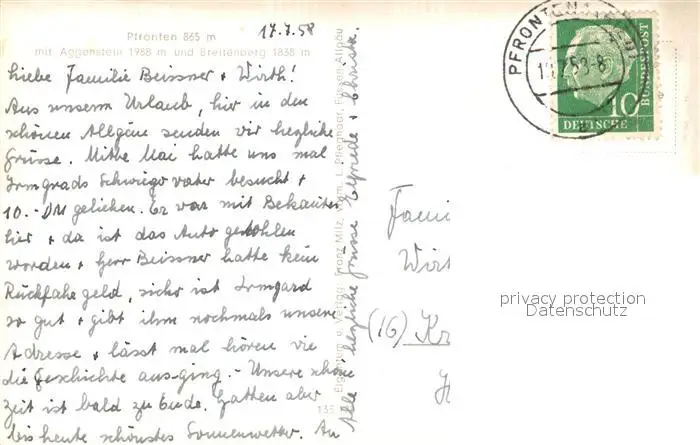 Pfronten 865 m
mit Aggenstein 1988 m und Breitenberg 1838 m
17.7.58
Liebe Familie Beissner + Wirth!
Aus unserm Urlaub, hier in den
schönen Allgäue senden wir herzliche
Grüsse. Mitte Mai hatte uns mal
Irmgrads Schwiegervater besucht +
10.- DM geliehen. Er war mit Bekannten
hier + da ist das Auto gestohlen
worden + Herr Beissner hatte kein
Rückfahrgeld, sicher ist Irmgard
so gut + gibt ihm nochmals unsere
Adresse + lässt mal hören wie
die Geschichte aus-ging. - Unsere schöne
Zeit ist bald zu Ende. Hatten aber
bis heute schönstes Sonnenwetter. An
Alle herzliche Grüsse Elfriede + Christa.
Eigentum u. Verlag: Franz Milz, Füssen Allgäu
135
PFRONTEN
DEUTSCHE
BUNDESPOST
10
Famil
Wirt
(16) Kr
privacy protection
Datenschutz